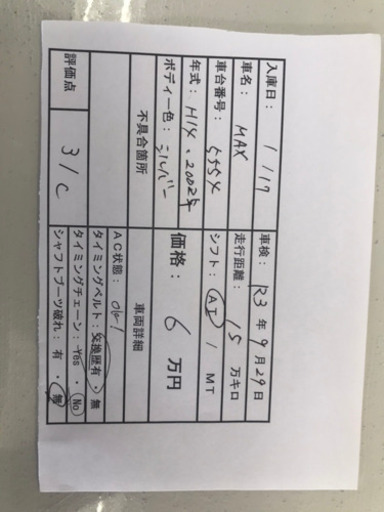 入庫日： 1／17 車検： R3 年 9 月 29日
車名： MAX 走行距離： 15 万キロ
車台番号： 5554 シフト： AT / MT
年式： H14 、2002年 価格： 6 万円
ボディー色： シルバー
不具合箇所 車両詳細
AC状態： OK!
タイミングベルト：交換歴有・無
タイミングチェーン：Yes ・ No
評価点 3/C シャフトブーツ破れ：有 ・ 無